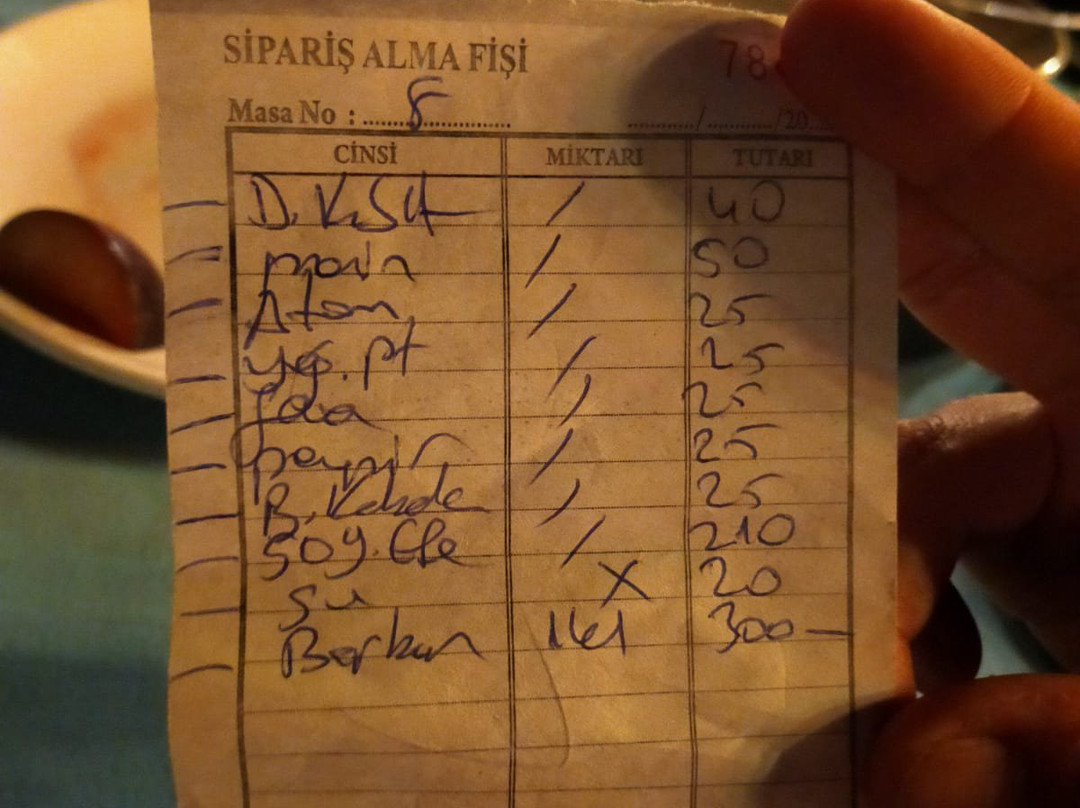 SİPARİŞ ALMA FİŞİ 78
Masa No : 8 ......./......./20....
CİNSİ MİKTARI TUTARI
/ 40
/ 50
Atom / 25
yoğ. pt / 25
fava / 25
peynir / 25
/ 25
50 y. Efe / 210
Su X 20
300 —